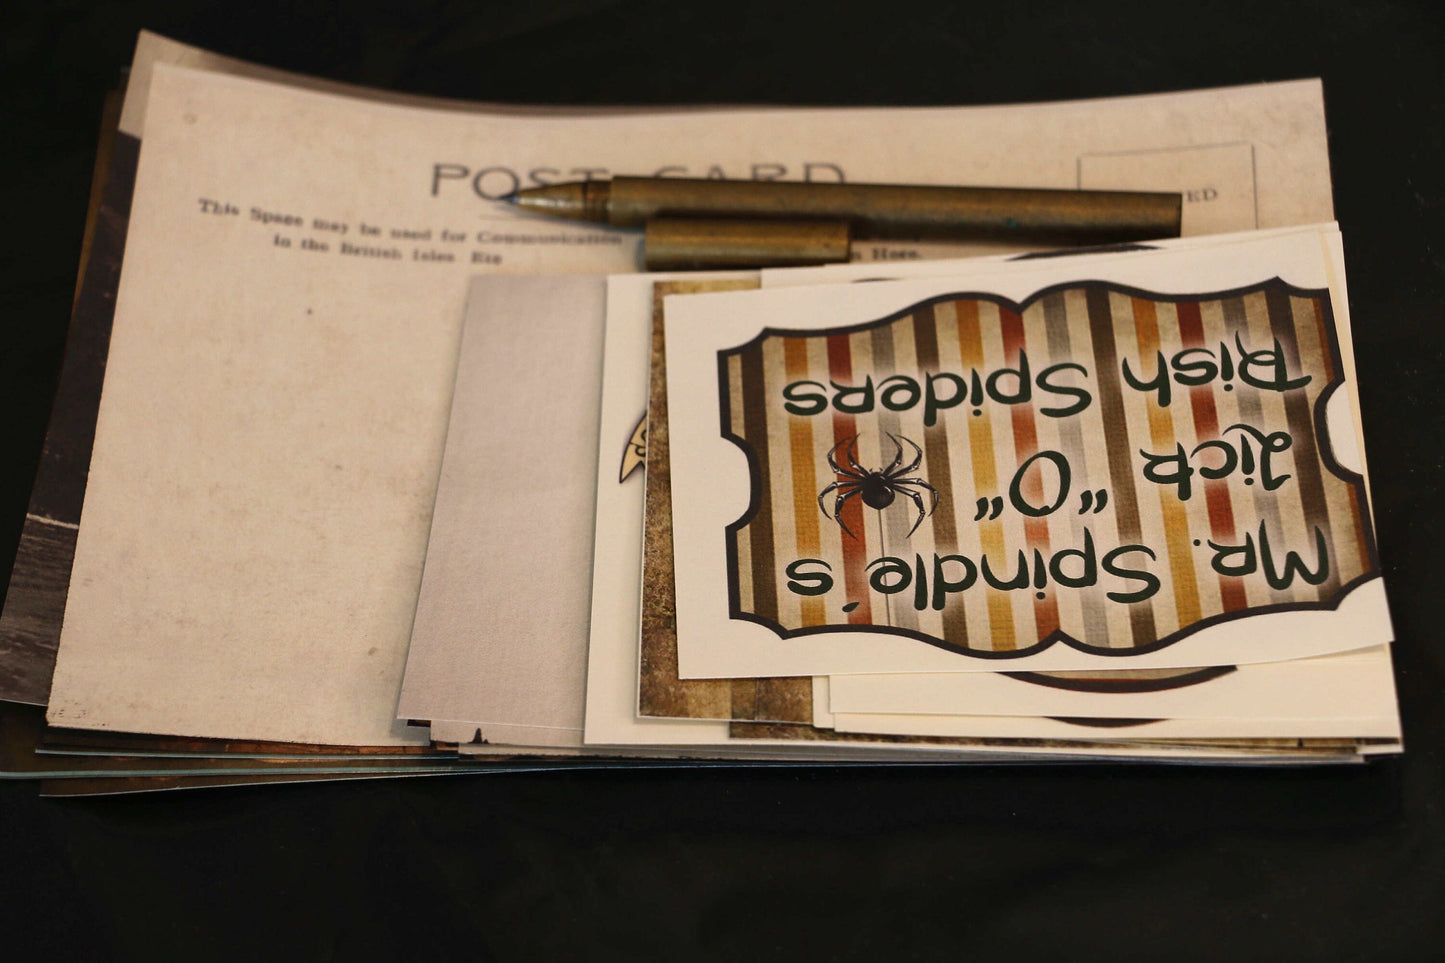 POST CARD
This Space may be used for Communication
in the British Isles
Here.
Mr. Spindle's
Lick "O"
Rish Spiders